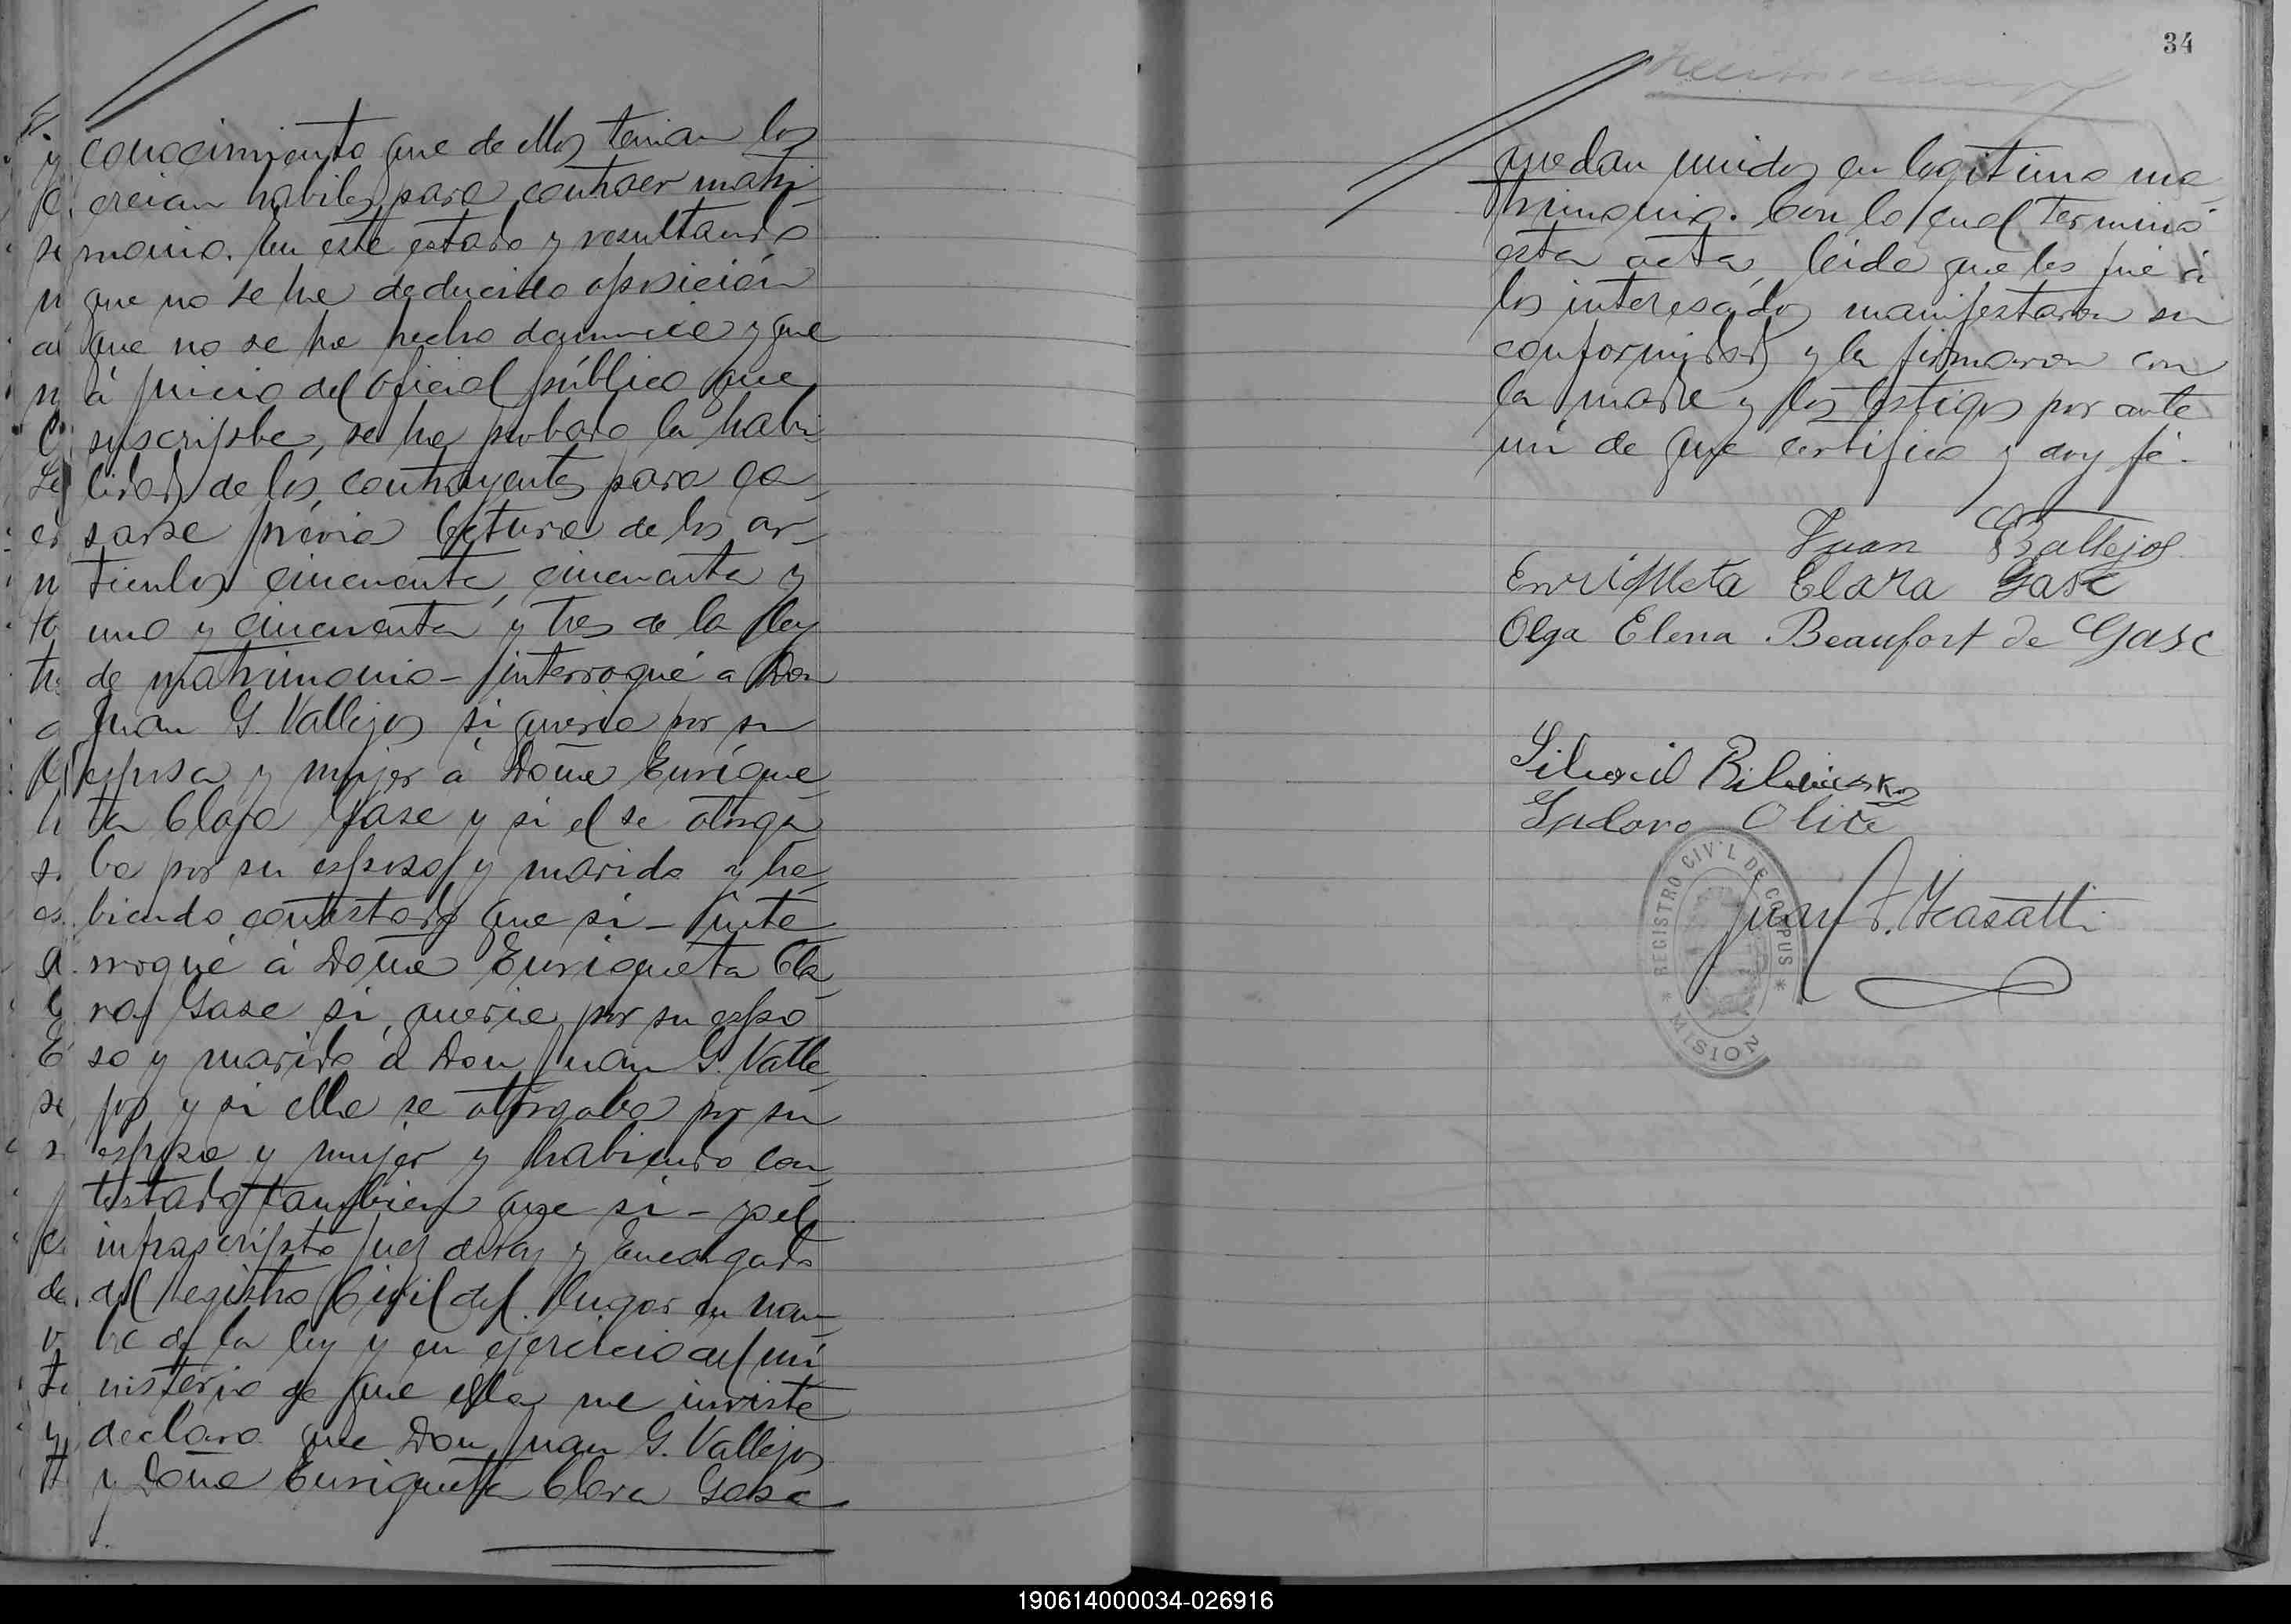 conocimiento que de ellos tenian los
creian habiles para contraer matri-
monio. En este estado y resultando
que no se ha deducido oposición
que no se ha hecho denuncia y que
á juicio del oficial público que
suscripbe, se ha probado la habi-
lidad de los contrayentes para ca-
sarse prévia lectura de los ar-
tículos cincuenta, cincuenta y
uno y cincuenta y tres de la ley
de matrimonio - interrogué a Don
Juan G. Vallejos si queria por su
esposa y mujer á Doña Enrique-
ta Clara Gasc y si el se otorga-
ba por su esposo y marido y ha-
biendo contestado que si - inte-
rrogué á Doña Enriqueta Cla-
ra Gasc si queria por su espo-
so y marido á Don Juan G. Valle-
jos y si ella se otorgaba por su
esposa y mujer y habiendo con-
testado tambien que si - yo el
infrascripto Juez de Paz y Encargado
del Registro Civil del lugar en nom-
bre de la ley y en ejercicio del mi-
nisterio de que ella me inviste
declaro que Don Juan G. Vallejos
y Doña Enriqueta Clara Gasc
34
quedan unidos en legítimo ma-
trimonio. Con lo cual terminó
esta acta, leida que les fué á
los interesados manifestaron su
conformidad y la firmaron con
la madre y los testigos por ante
mi de que certifico y doy fé.
Juan G Vallejos
Enriqueta Clara Gasc
Olga Elena Beaufort de Gasc
Isidoro
REGISTRO CIVIL DE CORPUS * MISION
Juan
190614000034-026916